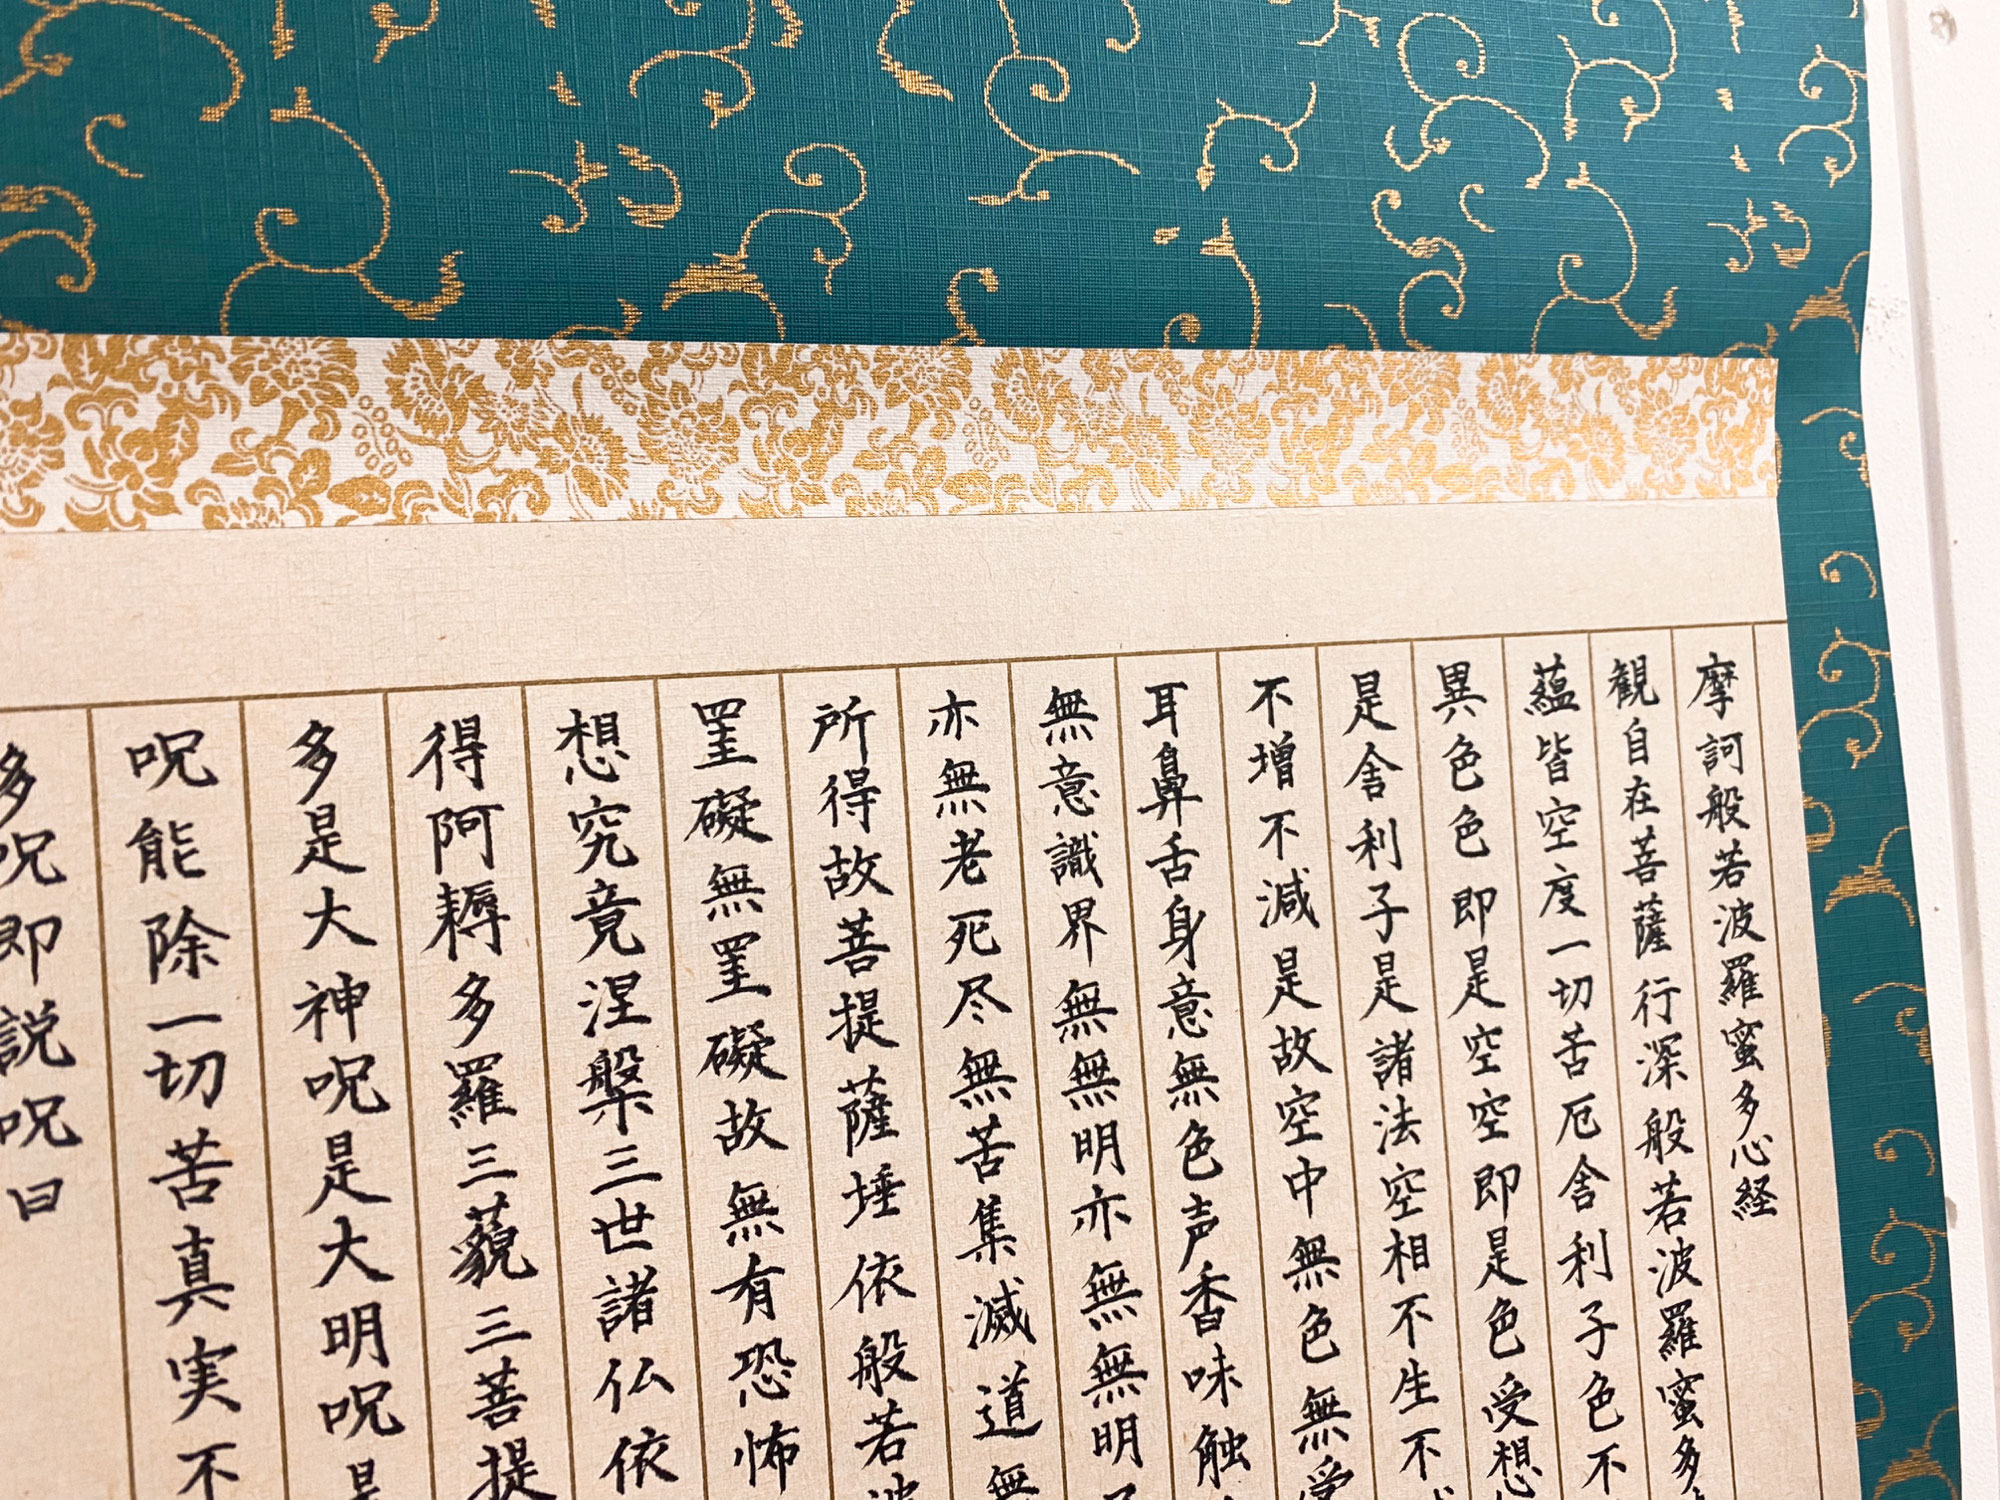 摩訶般若波羅蜜多心経
観自在菩薩行深般若波羅蜜多
蘊皆空度一切苦厄舎利子色不
異色色即是空空即是色受想
是舎利子是諸法空相不生不
不増不減是故空中無色無受
耳鼻舌身意無色声香味触
無意識界無無明亦無無明
亦無老死尽無苦集滅道無
所得故菩提薩埵依般若波
罣礙無罣礙故無有恐怖
想究竟涅槃三世諸仏依
得阿耨多羅三藐三菩提
多是大神呪是大明呪是
呪能除一切苦真実不
多呪即説呪曰